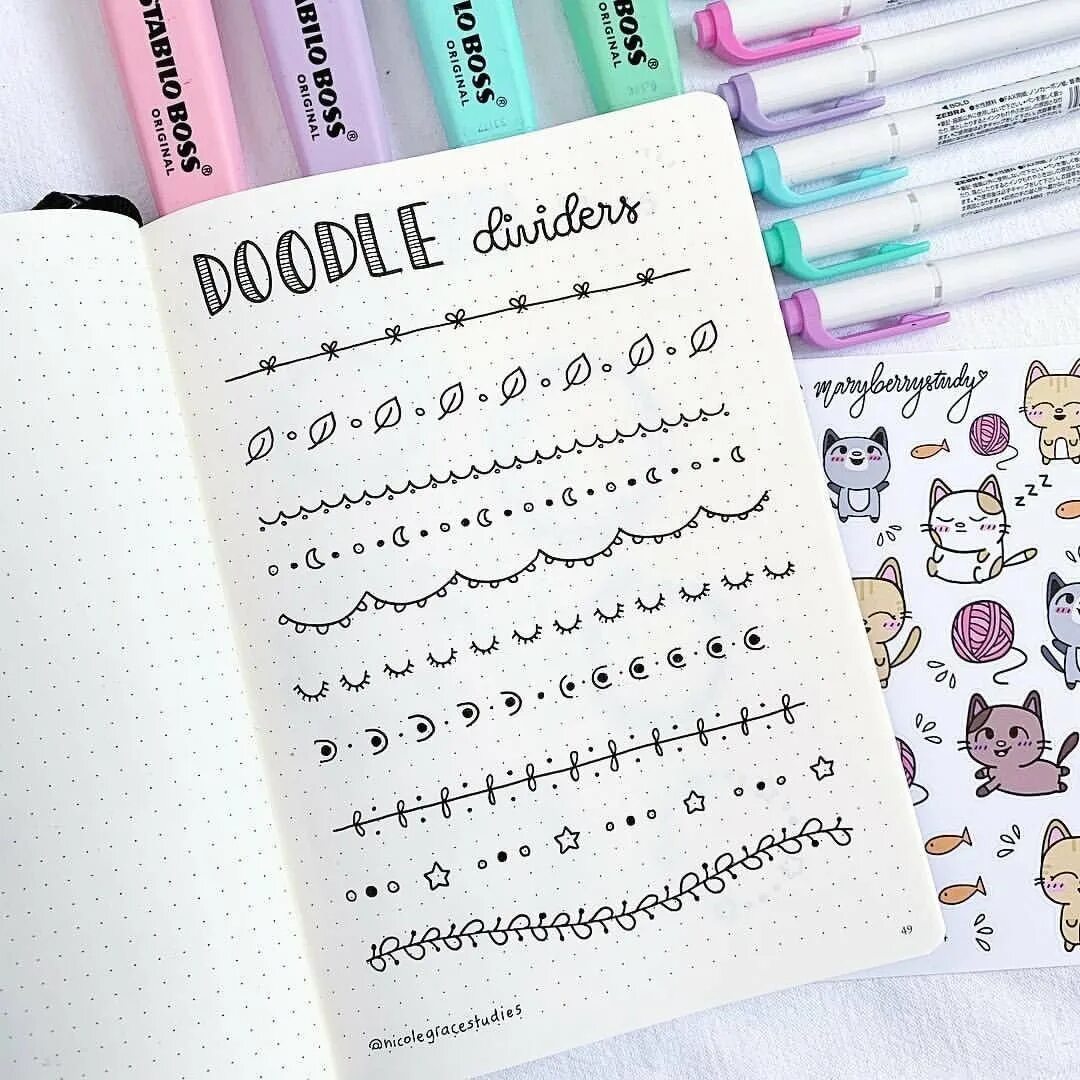 STABILO BOSS®
ORIGINAL
STABILO BOSS®
ORIGINAL
LO BOSS®
ORIGINAL
BOSS®
ORIGINAL
BOLD
ZEBRA
ZEBRA
DOODLE dividers
maryberrystudy
zzz
49
@nicolegracestudies